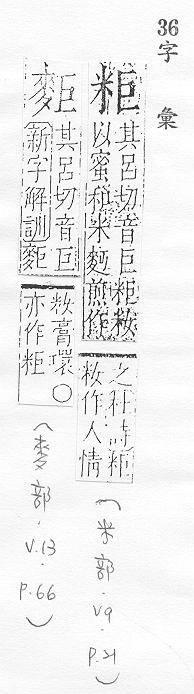 36字彙
粔
其呂切音巨粔籹
以蜜和米麵煎作
之杜詩粔
籹作人情
(米部.V9.P.21)
䵶
其呂切音巨
新字解訓麮
籹膏環○
亦作粔
(麥部.V.13.P.66)